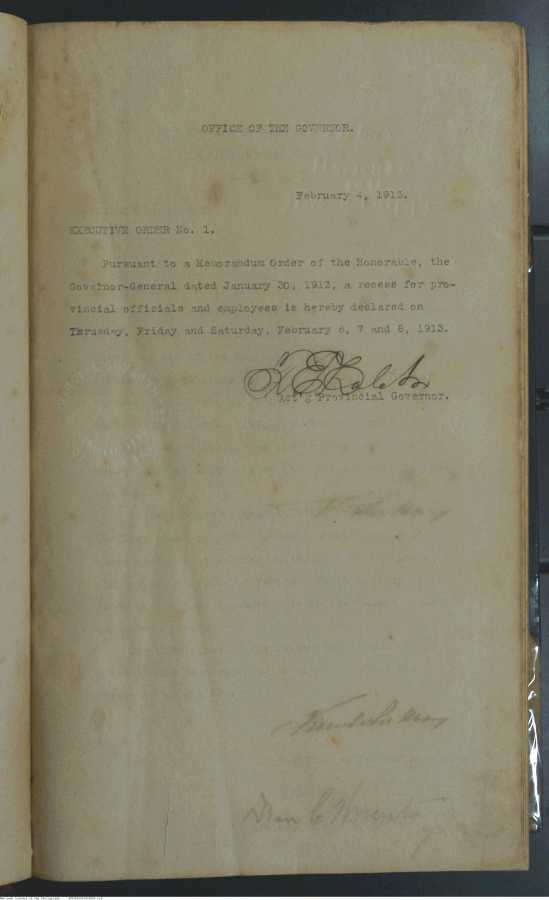 OFFICE OF THE GOVERNOR.
February 4, 1913.
EXECUTIVE ORDER No. 1.
Pursuant to a Memorandum Order of the Honorable, the
Governor-General dated January 30, 1912, a recess for pro-
vincial officials and employees is hereby declared on
Thrusday, Friday and Saturday, February 6, 7 and 8, 1913.
Act'g Provincial Governor.
National Library of the Philippines